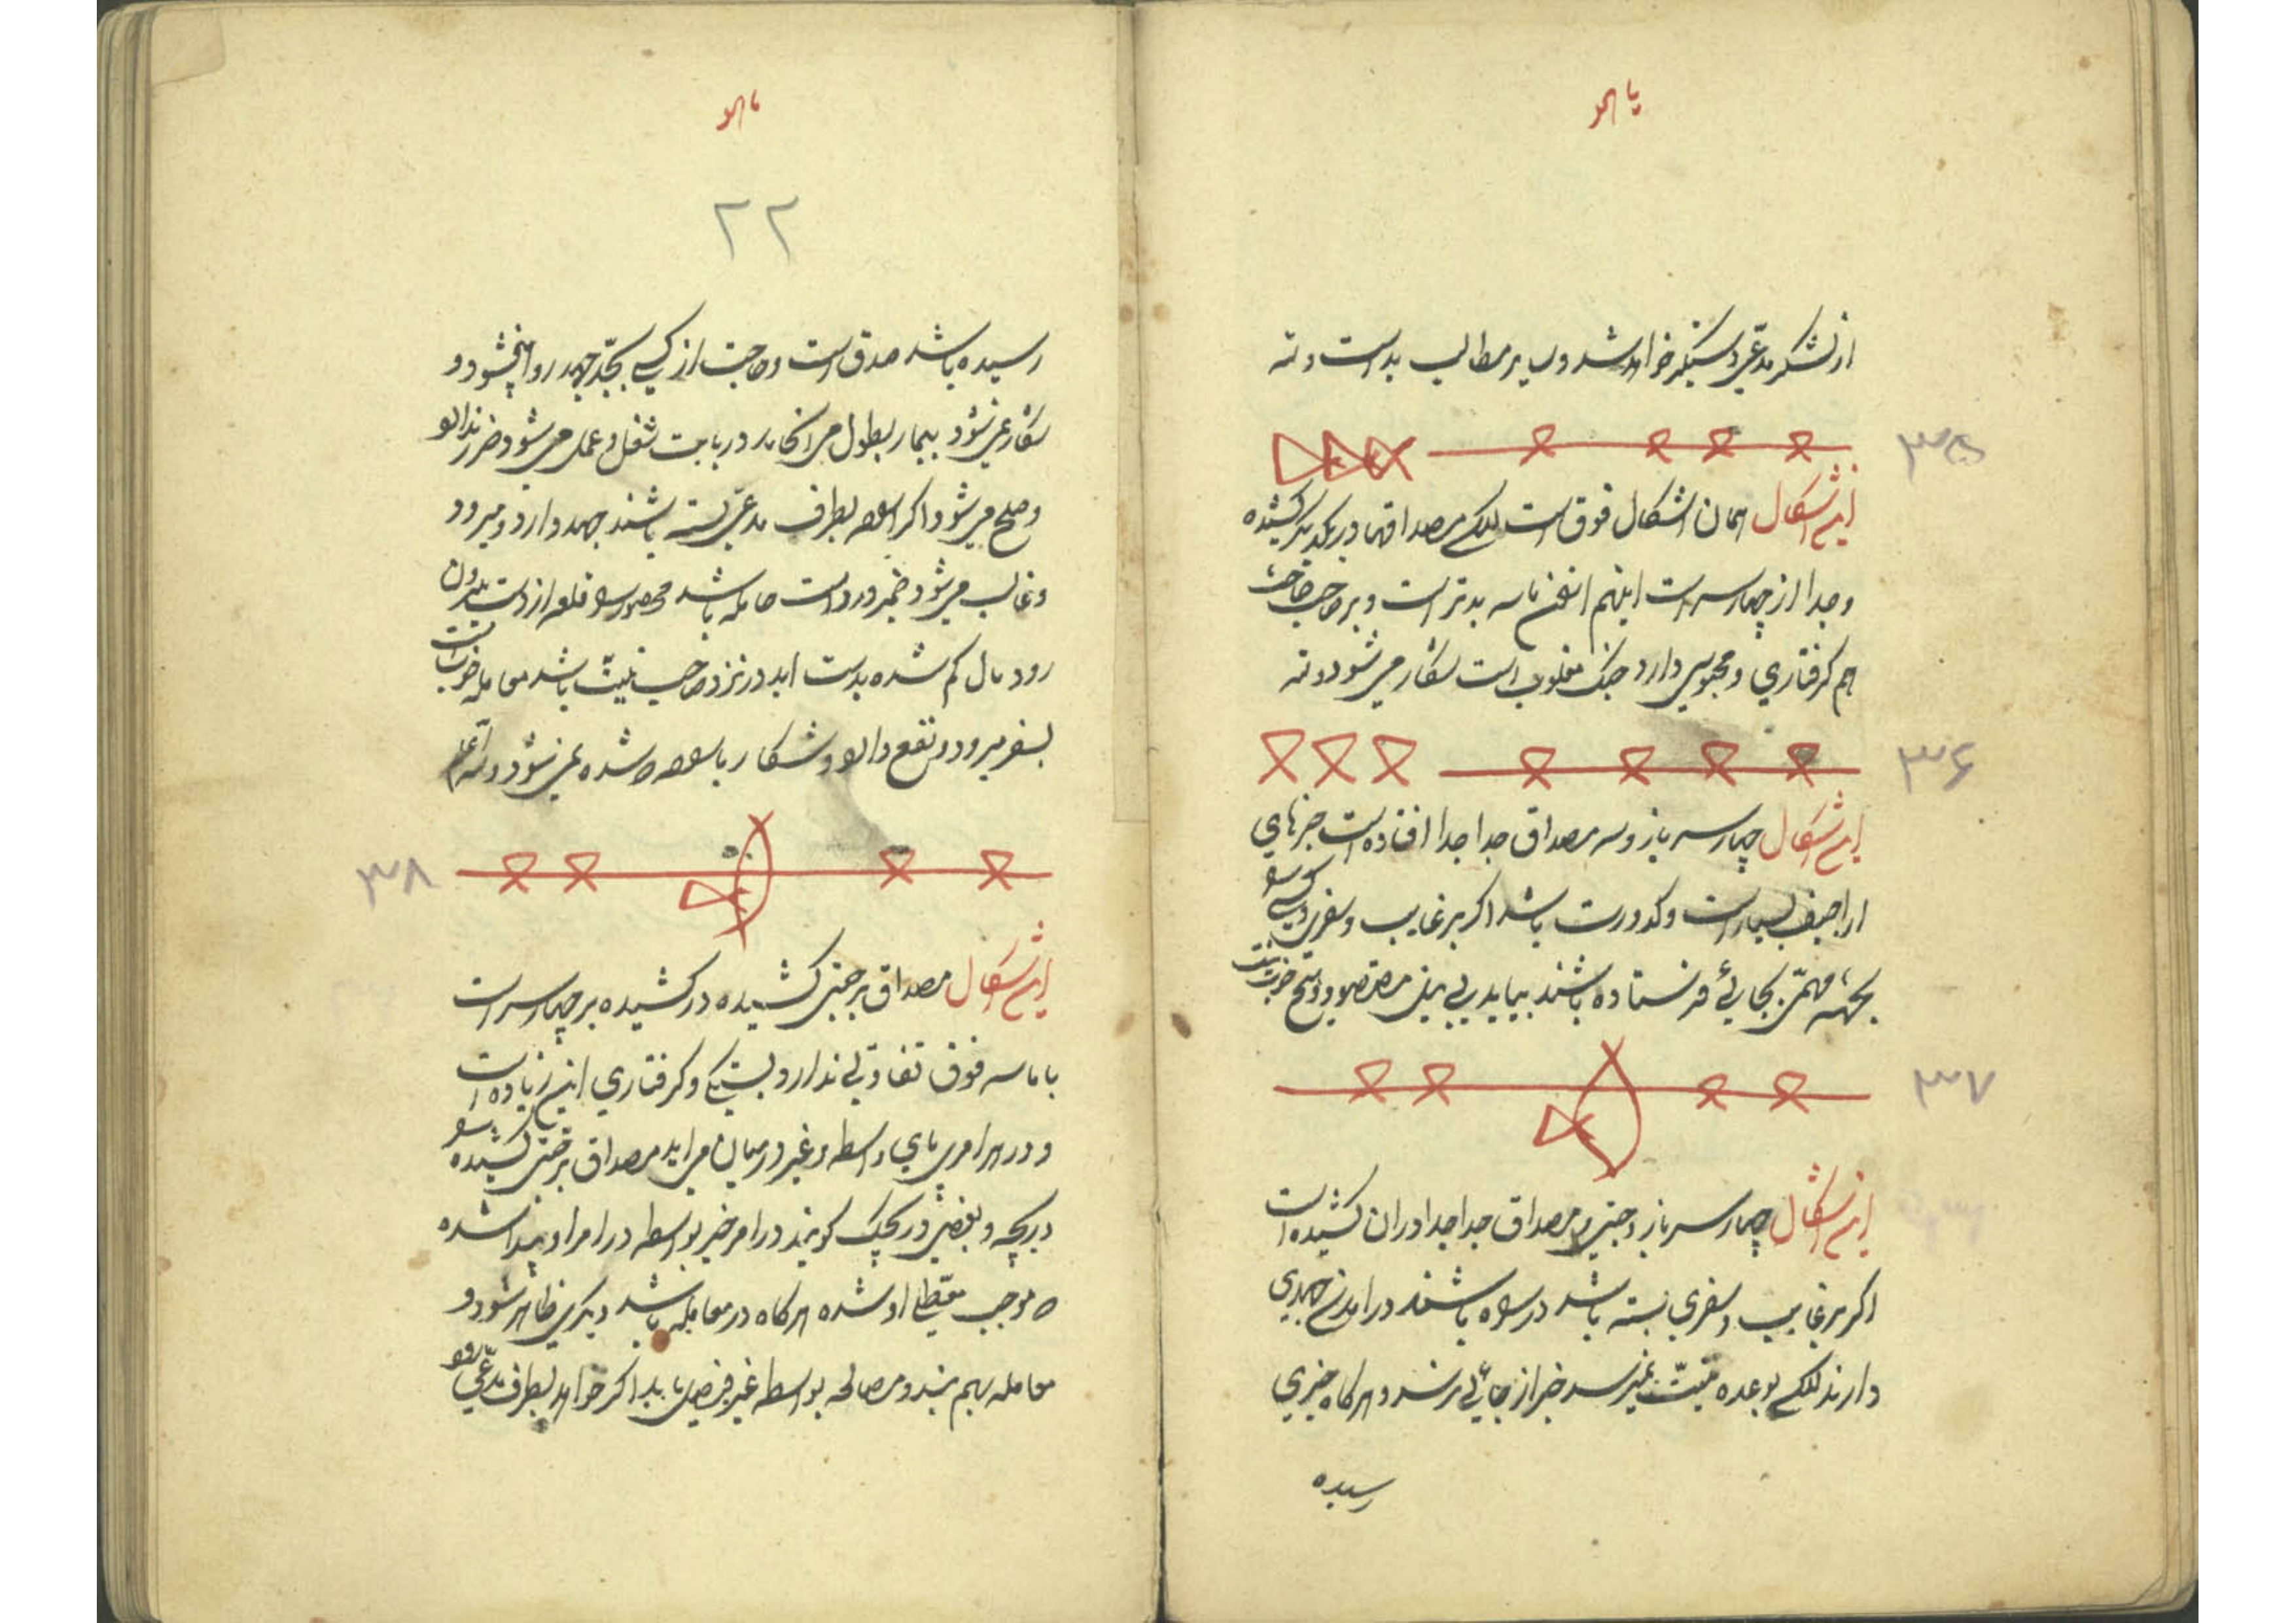 یا هو
از لشکر مدعی دستگیر خواهد شد و سایر مطالب بد است و نه
۳۵
این اشکال همان اشکال فوق است لیکن مصداقها در یکدیگر کشیده
و جدا از چهار سر است اینهم بدتر است و بر صاحب
هم گرفتاری و محبوسی دارد جنگ مغلوب است شکار می شود و نه
۳۶
این اشکال چهار سر باز و سه مصداق جدا جدا افتاده است خبرهای
اراجیف بسیار است و کدورت باشد اگر بر غایب و سفری و کسی
بجهة مهمی بجائی فرستاده باشند بیاید بی نیل مقصود و
۳۷
این اشکال چهار سر باز و جفتی و مصداق جدا جدا در ان کشیده است
اگر بر غایب و سفری بسته باشد در راه باشند در امدن جهدی
دارند لیکن بوعده نمیرسد خبر از جائی نرسد و هرگاه خبری
رسیده
یا هو
۲۲
رسیده باشد صدق است و حاجت از کسی بجد و جهد روا میشود و
شکار نمی شود بیمار بطول می انجامد در بابت شغل و عمل می شود ضرر ندارد
و صلح می شود اگر بطرف مدعی بسته باشند جهد دارد و میرود
و غالب می شود ضمیر در است حامله باشد محصور قلعه از دست بیرون
رود مال گم شده بدست اید در نزد صاحب نیت باشد معامله خوب است
بسفر میرود و نفع دارد و شکار شده نمی شود والله اعلم
۳۸
این اشکال مصداق بر جفتی کشیده در کشیده بر چهار سر است
با ماسه فوق تفاوتی ندارد و بستگی و گرفتاری این زیاده است
و در هر امری پای واسطه و غیر در میان می اید مصداق بر جفتی کشیده
دریچه و بعضی دریچک گویند در امر خیر بواسطه در امر او پیدا شده
که موجب معطلی او شده هرگاه در معامله باشد دیگری ظاهر شود و
معامله بهم بزند و مصالحه بواسطه غیر فیصل یابد اگر خواهد بطرف مدعی رود